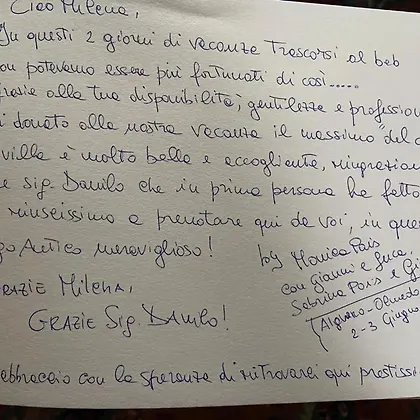 Ciao Milena,
In questi 2 giorni di vacanze trascorsi al beb
non potevamo essere più fortunati di così.....
Grazie alla tua disponibilità, gentilezza e profession
donato alla nostra vacanza il massimo del c
villa è molto bella e accogliente, ringrazion
e Sig. Danilo che in prima persona ha fatto
rinscissimo a prenotare qui da voi, in ques
Antico meraviglioso!
GRAZIE MILENA,
GRAZIE Sig. DANILO!
by Monica Pais
con Gianni e Luca,
Sabrina Pais e Gi
Alghero-Olmedo
2-3 Giugno
abbraccio con la speranza di ritrovarci qui prestiss